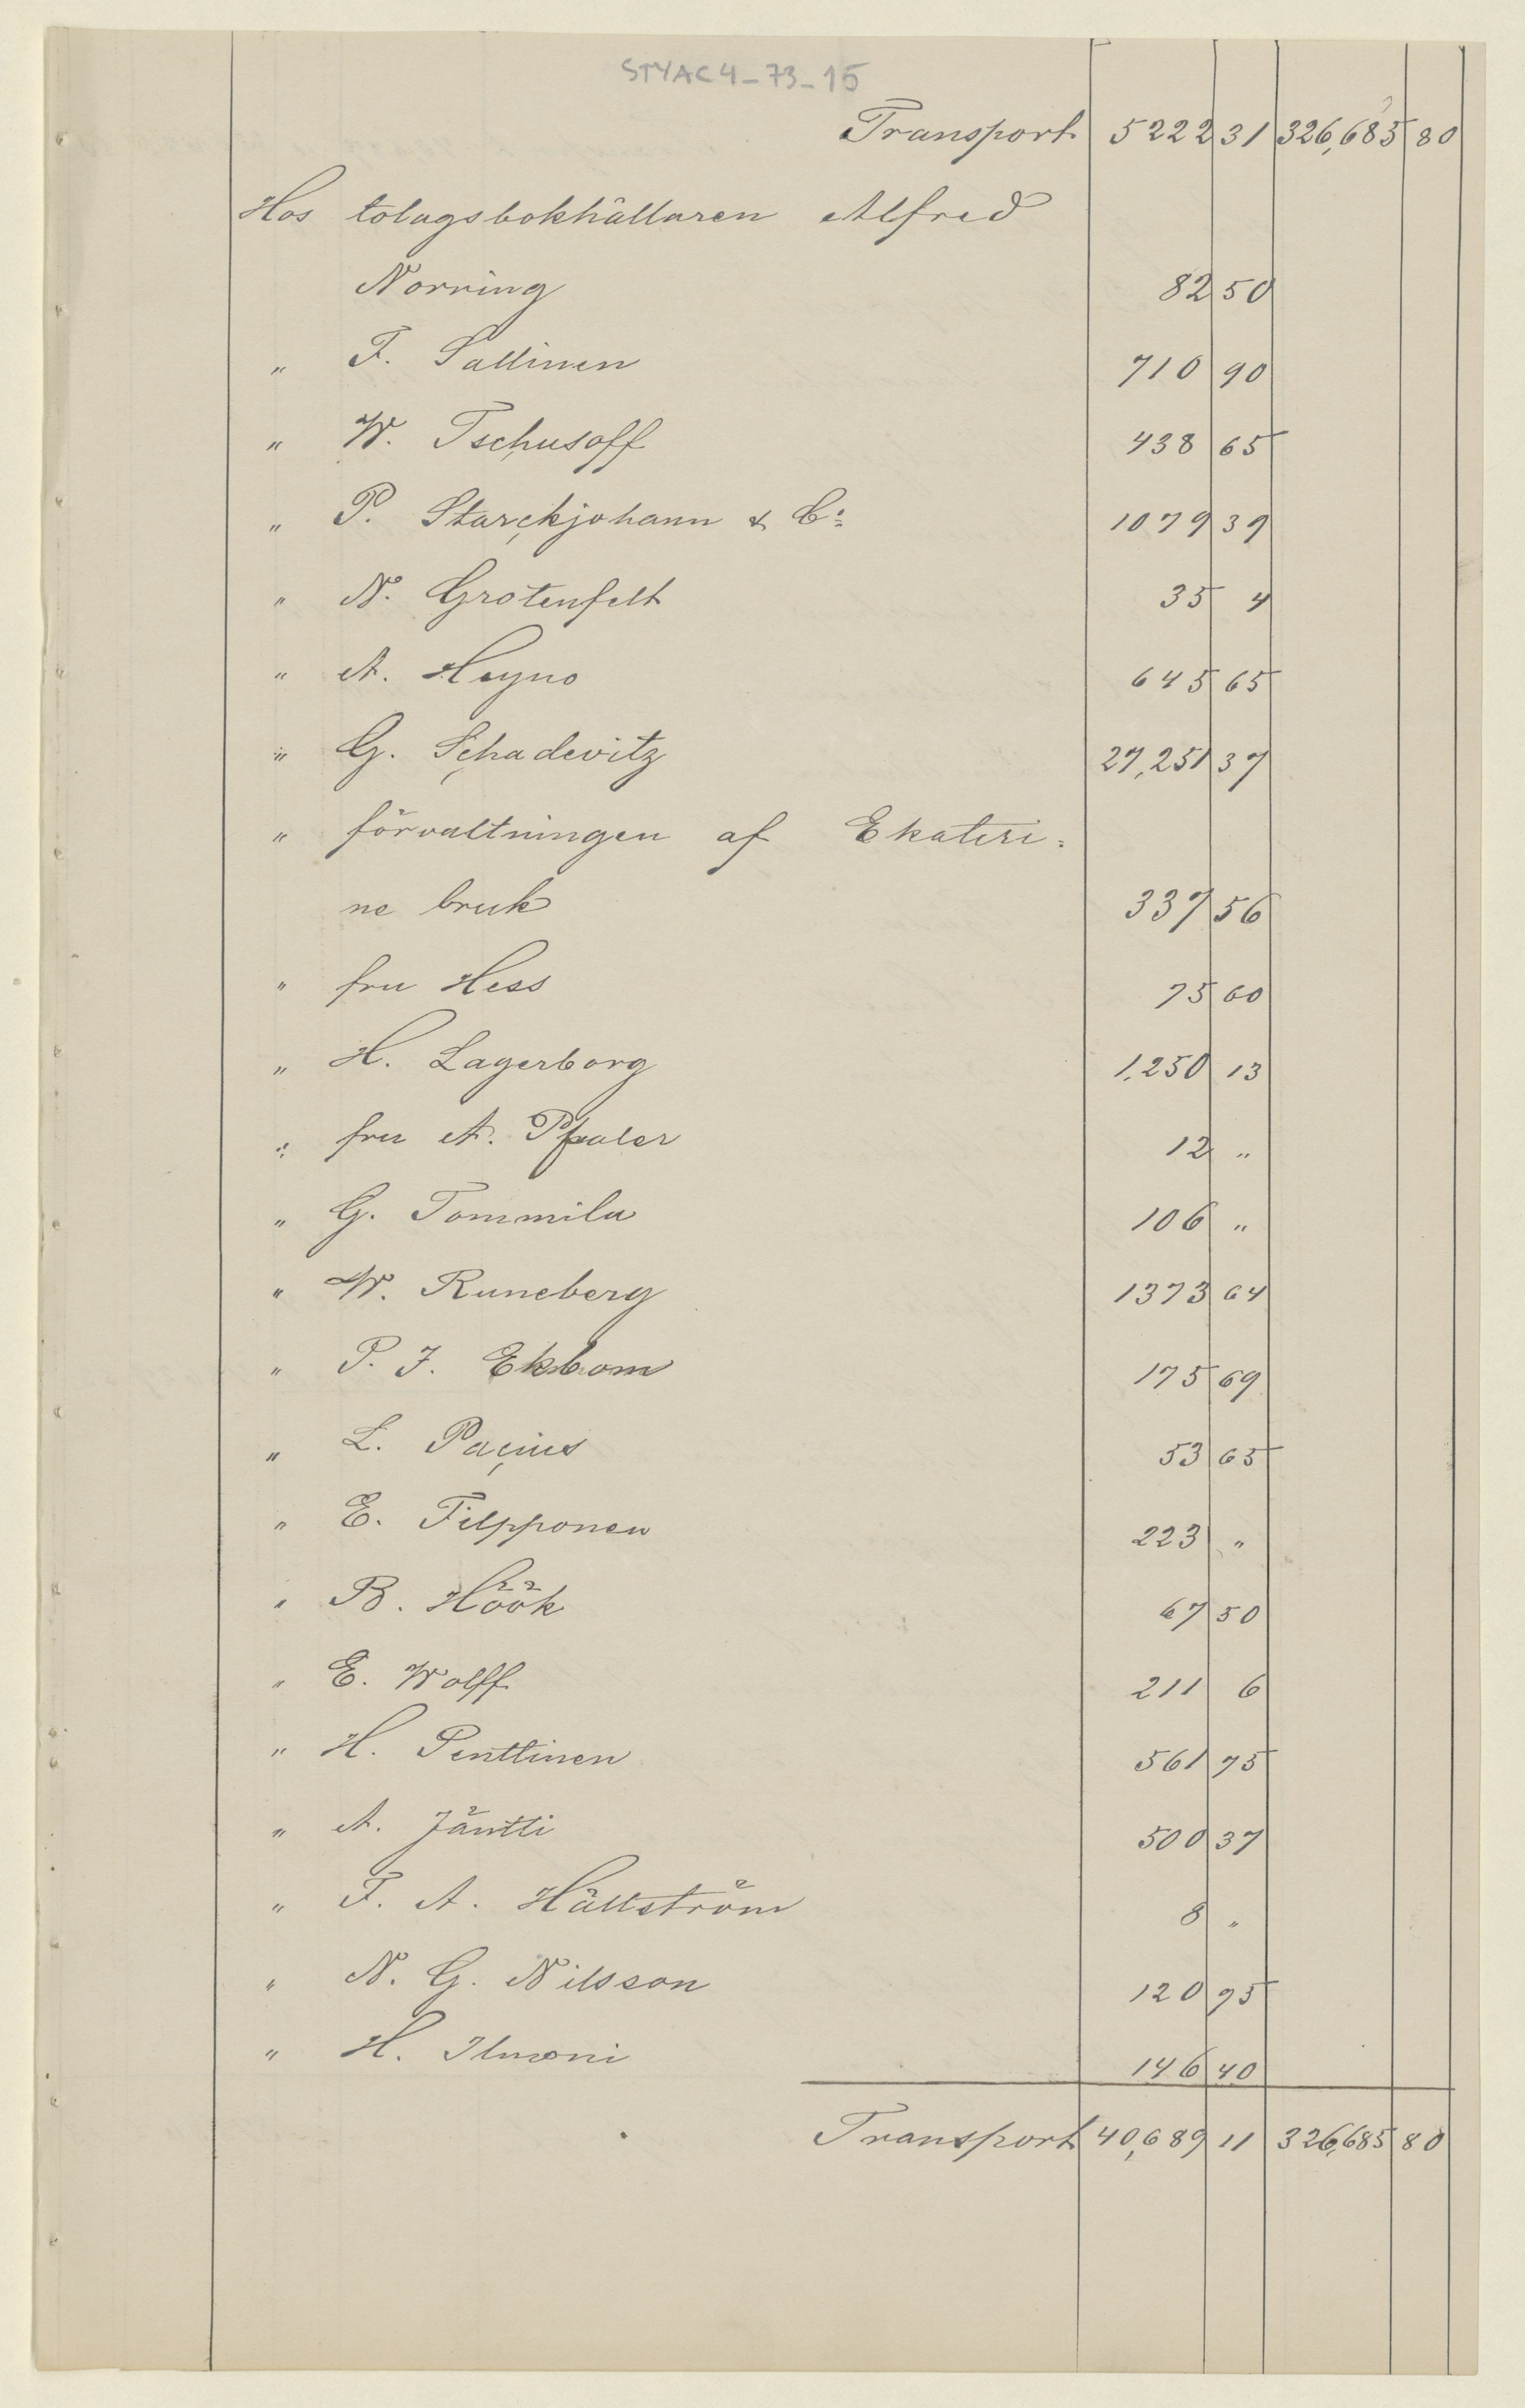 STYAC4-73-15
Transport 5222 31 326,685 80
Hos tolagsbokhållaren Alfred
Norring 82 50
" F. Sallinen 710 90
" W. Tschusoff 438 65
" P. Starckjohann & Co 1079 39
" N. Grotenfelt 35 4
" A. Heyno 645 65
" G. Schadevitz 27,251 37
" förvaltningen af Ekateri-
ne bruk 337 56
" fru Hess 75 60
" H. Lagerborg 1,250 13
" fru A. Pfaler 12 "
" G. Tommila 106 "
" W. Runeberg 1373 64
" P. J. Ekbom 175 69
" L. Pacius 53 65
" E. Filpponen 223 "
" B. Höök 67 50
" E. Wolff 211 6
" H. Penttinen 561 75
" A. Jäntti 500 37
" F. A. Hällström 8 "
" N. G. Nilsson 120 75
" H. Ilmoni 146 40
Transport 40,689 11 326,685 80